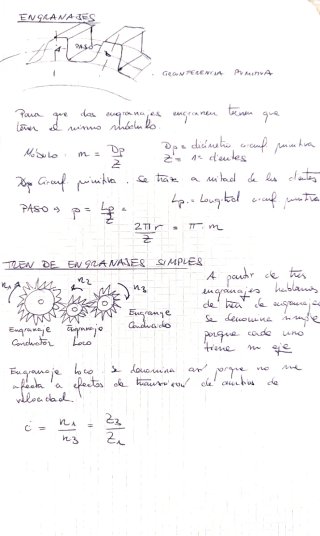 ENGRANAJES
PASO
CIRCUNFERENCIA PRIMITIVA
Para que dos engranajes engranen tienen que
tener el mismo módulo.
Módulo. m = Dp/Z
Dp = diámetro circunf primitiva
Z = nº dientes
Dp Circunf primitiva. Se traza a mitad de los dientes
PASO → p = Lp/Z =
Lp = Longitud circunf primitiva
2πr/Z = π · m
TREN DE ENGRANAJES SIMPLES
n1
n2
n3
Engranaje Conductor
Engranaje Loco
Engranaje Conducido
A partir de tres
engranajes hablamos
de tren de engranajes
Se denomina simple
porque cada uno
tiene su eje
Engranaje loco se denomina así porque no
afecta a efectos de transmisión de cambios de
velocidad.
i = n1/n3 = Z3/Z1